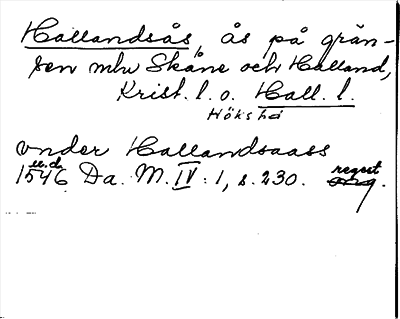 Hallandsås, ås på grän-
sen mlw Skåne och Halland,
Krist. l. o. Hall. l.
Höks hd
vnder Hallandsaass
u.d.
1546 Da. M. IV : 1, s. 230. regest